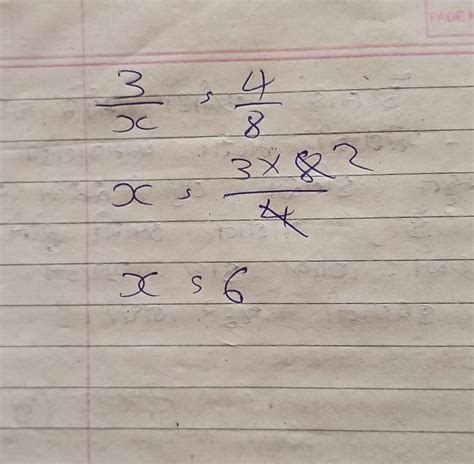 PAGE
3/x = 4/8
x = 3 × 8 2 / 4
x = 6